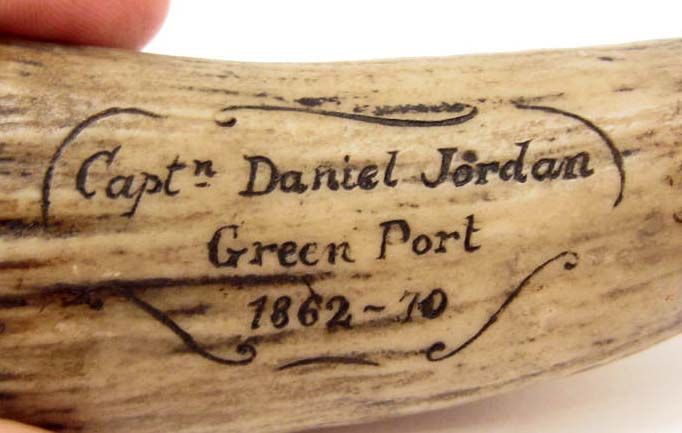 Captn Daniel Jordan
Green Port
1862~70